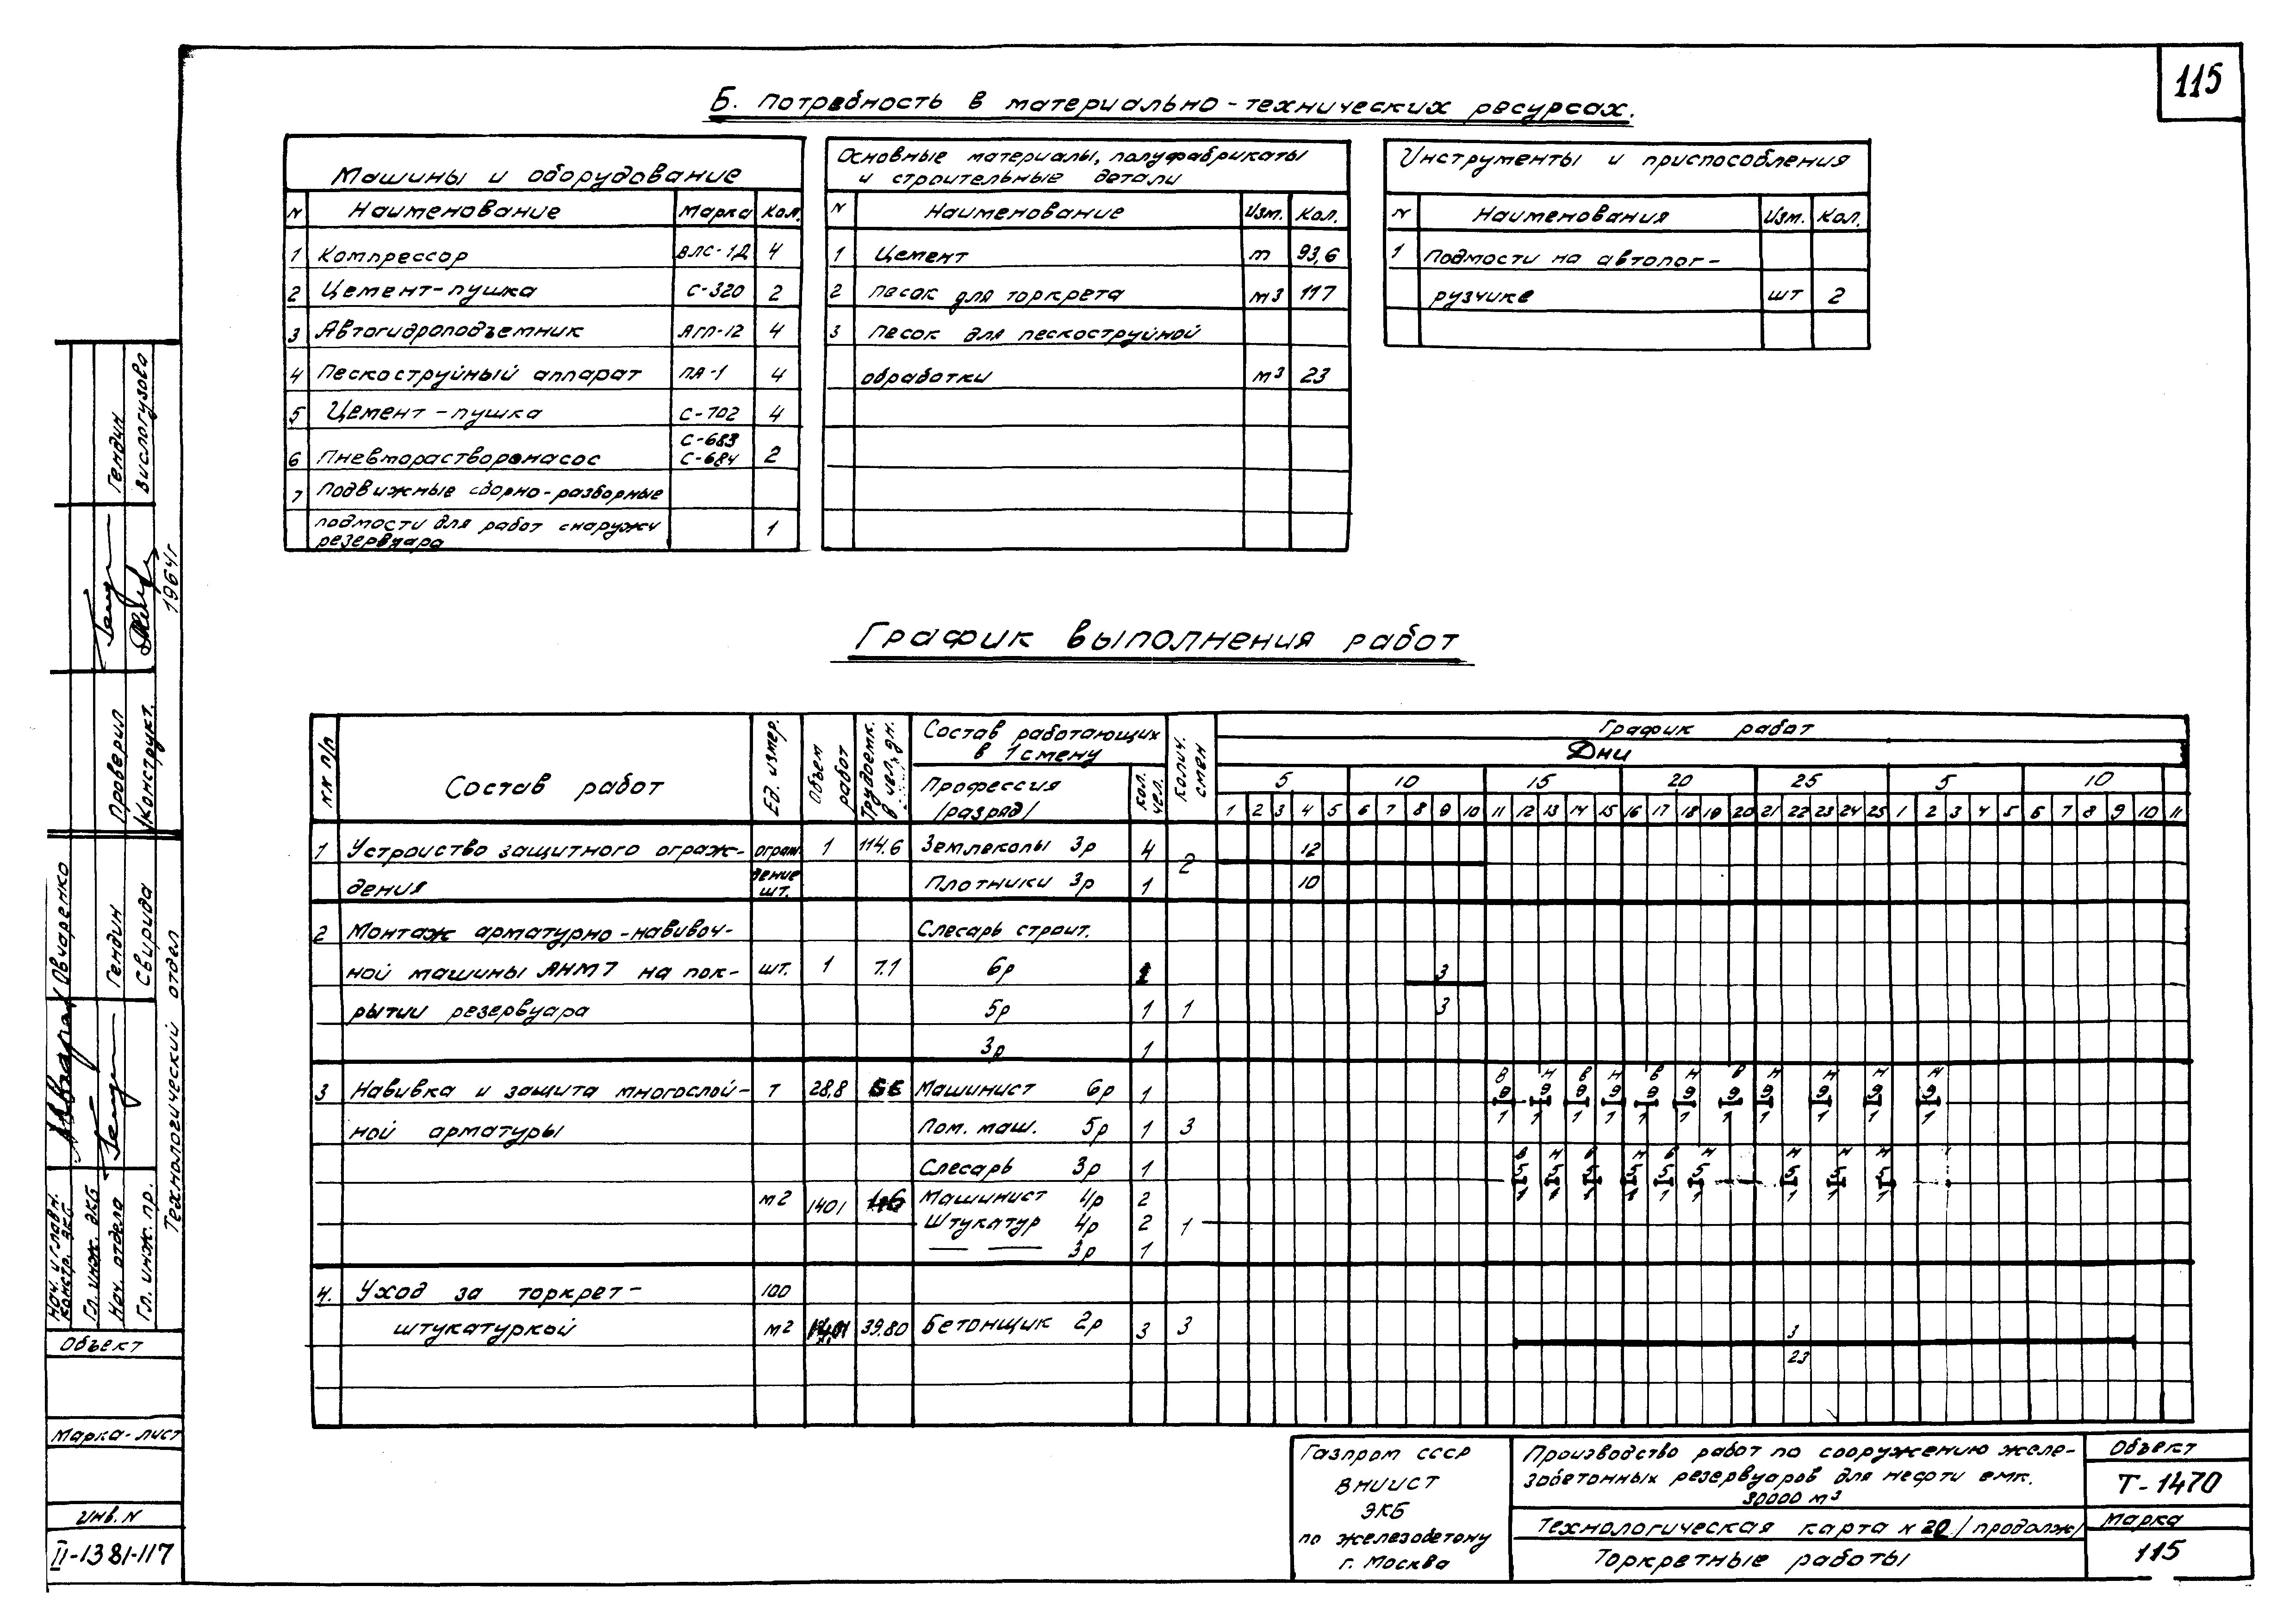 115
Б. Потребность в материально-технических ресурсах.
Машины и оборудование
N Наименование Марка Кол.
1 Компрессор ВЛС-1Д 4
2 Цемент-пушка С-320 2
3 Автогидроподъемник АГП-12 4
4 Пескоструйный аппарат ПА-1 4
5 Цемент-пушка С-702 4
С-683
6 Пневморастворонасос С-684 2
7 Подвижные сборно-разборные
подмости для работ снаружи 1
резервуара
Основные материалы, полуфабрикаты
и строительные детали
N Наименование Изм. Кол.
1 Цемент т 93,6
2 Песок для торкрета м3 117
3 Песок для пескоструйной
обработки м3 23
Инструменты и приспособления
N Наименования Изм. Кол.
1 Подмости на автопог-
рузчике шт 2
График выполнения работ
NN п/п
Состав работ
Ед. измер.
Объем работ
Трудоемк. в чел. дн.
Состав работающих
в 1 смену
Профессия
/разряд/
Кол. чел.
Колич. смен
График работ
Дни
5 10 15 20 25 5 10
1 2 3 4 5 6 7 8 9 10 11 12 13 14 15 16 17 18 19 20 21 22 23 24 25 1 2 3 4 5 6 7 8 9 10 11
1 Устройство защитного ограж- ограж 1 114.6 Землекопы 3р 4 2 12
дения дение шт. Плотники 3р 1 10
2 Монтаж арматурно-навивоч- Слесарь строит.
ной машины АНМ7 на пок- шт. 1 7.1 6р 1 3
рытии резервуара 5р 1 1 3
3р 1
в н в н в н в н н н н
3 Навивка и защита многослой- т 28,8 Машинист 6р 1 9 9 9 9 9 9 9 9 9 9 9
ной арматуры Пом. маш. 5р 1 3 1 1 1 1 1 1 1 1 1 1 1
в н в н в н н н н
Слесарь 3р 1 5 5 5 5 5 5 5 5 5
м2 1401 Машинист 4р 2 1 1 1 1 1 1 1 1 1
Штукатур 4р 2 1
— — 3р 1
4. Уход за торкрет- 100
штукатуркой м2 14,01 39.80 Бетонщик 2р 3 3 3
23
Газпром СССР
ВНИИСТ
ЭКБ
по железобетону
г. Москва
Производство работ по сооружению желе-
зобетонных резервуаров для нефти емк.
30000 м3
Технологическая карта N 20 /продолж/
Торкретные работы
Объект
Т-1470
Марка
115
Гендин
Вислогузова
1964г
Проверил
Конструкт.
Овчаренко
Гендин
Свирида
Технологический отдел
Нач. и главн. констр. ЭКБ
Гл. инж. ЭКБ
Нач. отдела
Гл. инж. пр.
Объект
Марка-лист
Инв. N
II-1381-117